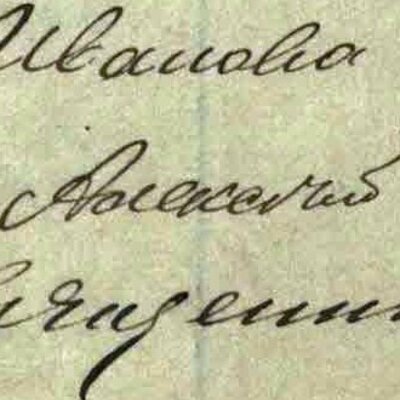 Иванова
Алексей